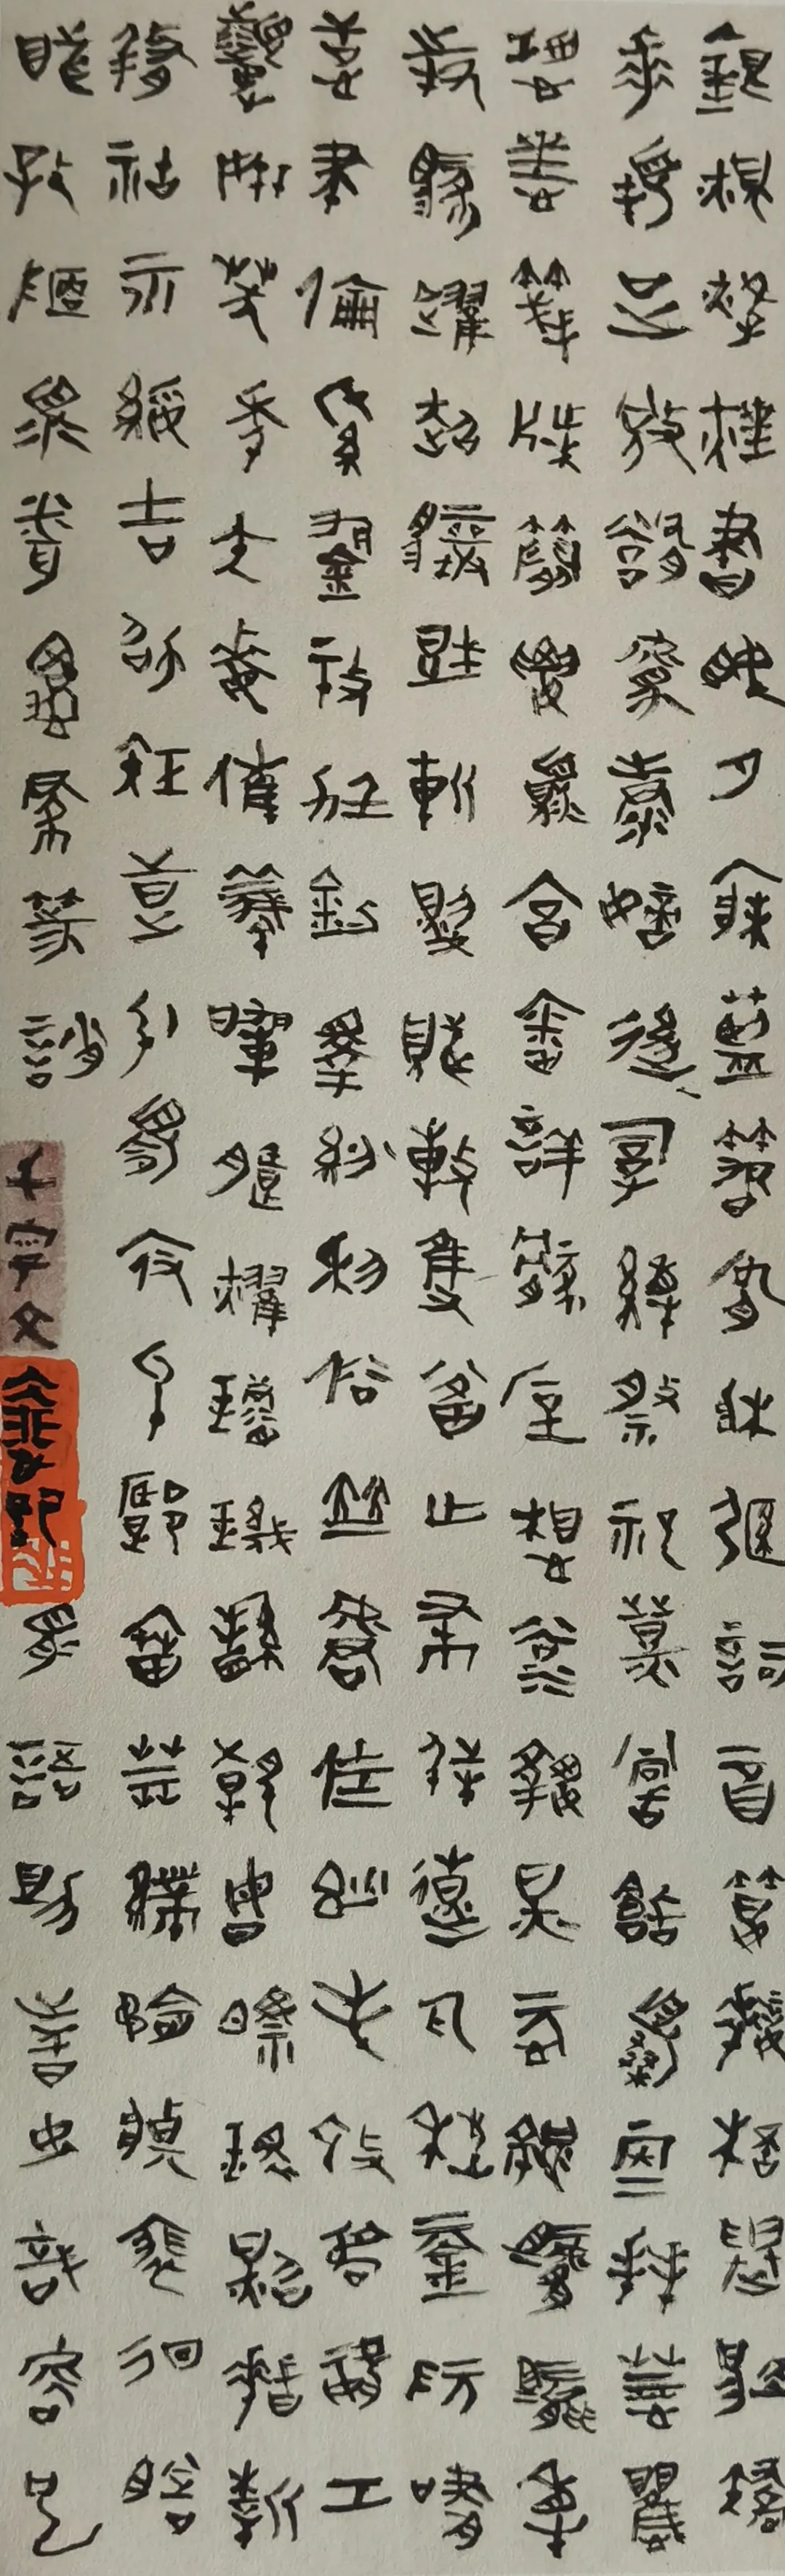 銀燭煒煌晝眠夕寐藍筍象床弦歌酒宴接杯舉觴矯
手頓足悅豫且康嫡後嗣續祭祀烝嘗稽顙再拜悚懼
恐惶箋牒簡要顧答審詳骸垢想浴執熱願涼驢騾犢
特駭躍超驤誅斬賊盜捕獲叛亡布射僚丸嵇琴阮嘯
恬筆倫紙鈞巧任釣釋紛利俗並皆佳妙毛施淑姿工
顰妍笑年矢每催曦暉朗曜璇璣懸斡晦魄環照指薪
修祜永綏吉劭矩步引領俯仰廊廟束帶矜莊徘徊瞻
眺孤陋寡聞愚蒙等誚
千字文
謂語助者焉哉乎也